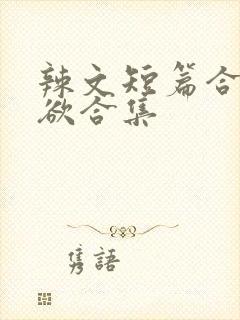 辣文短篇合
欲合集
隽語